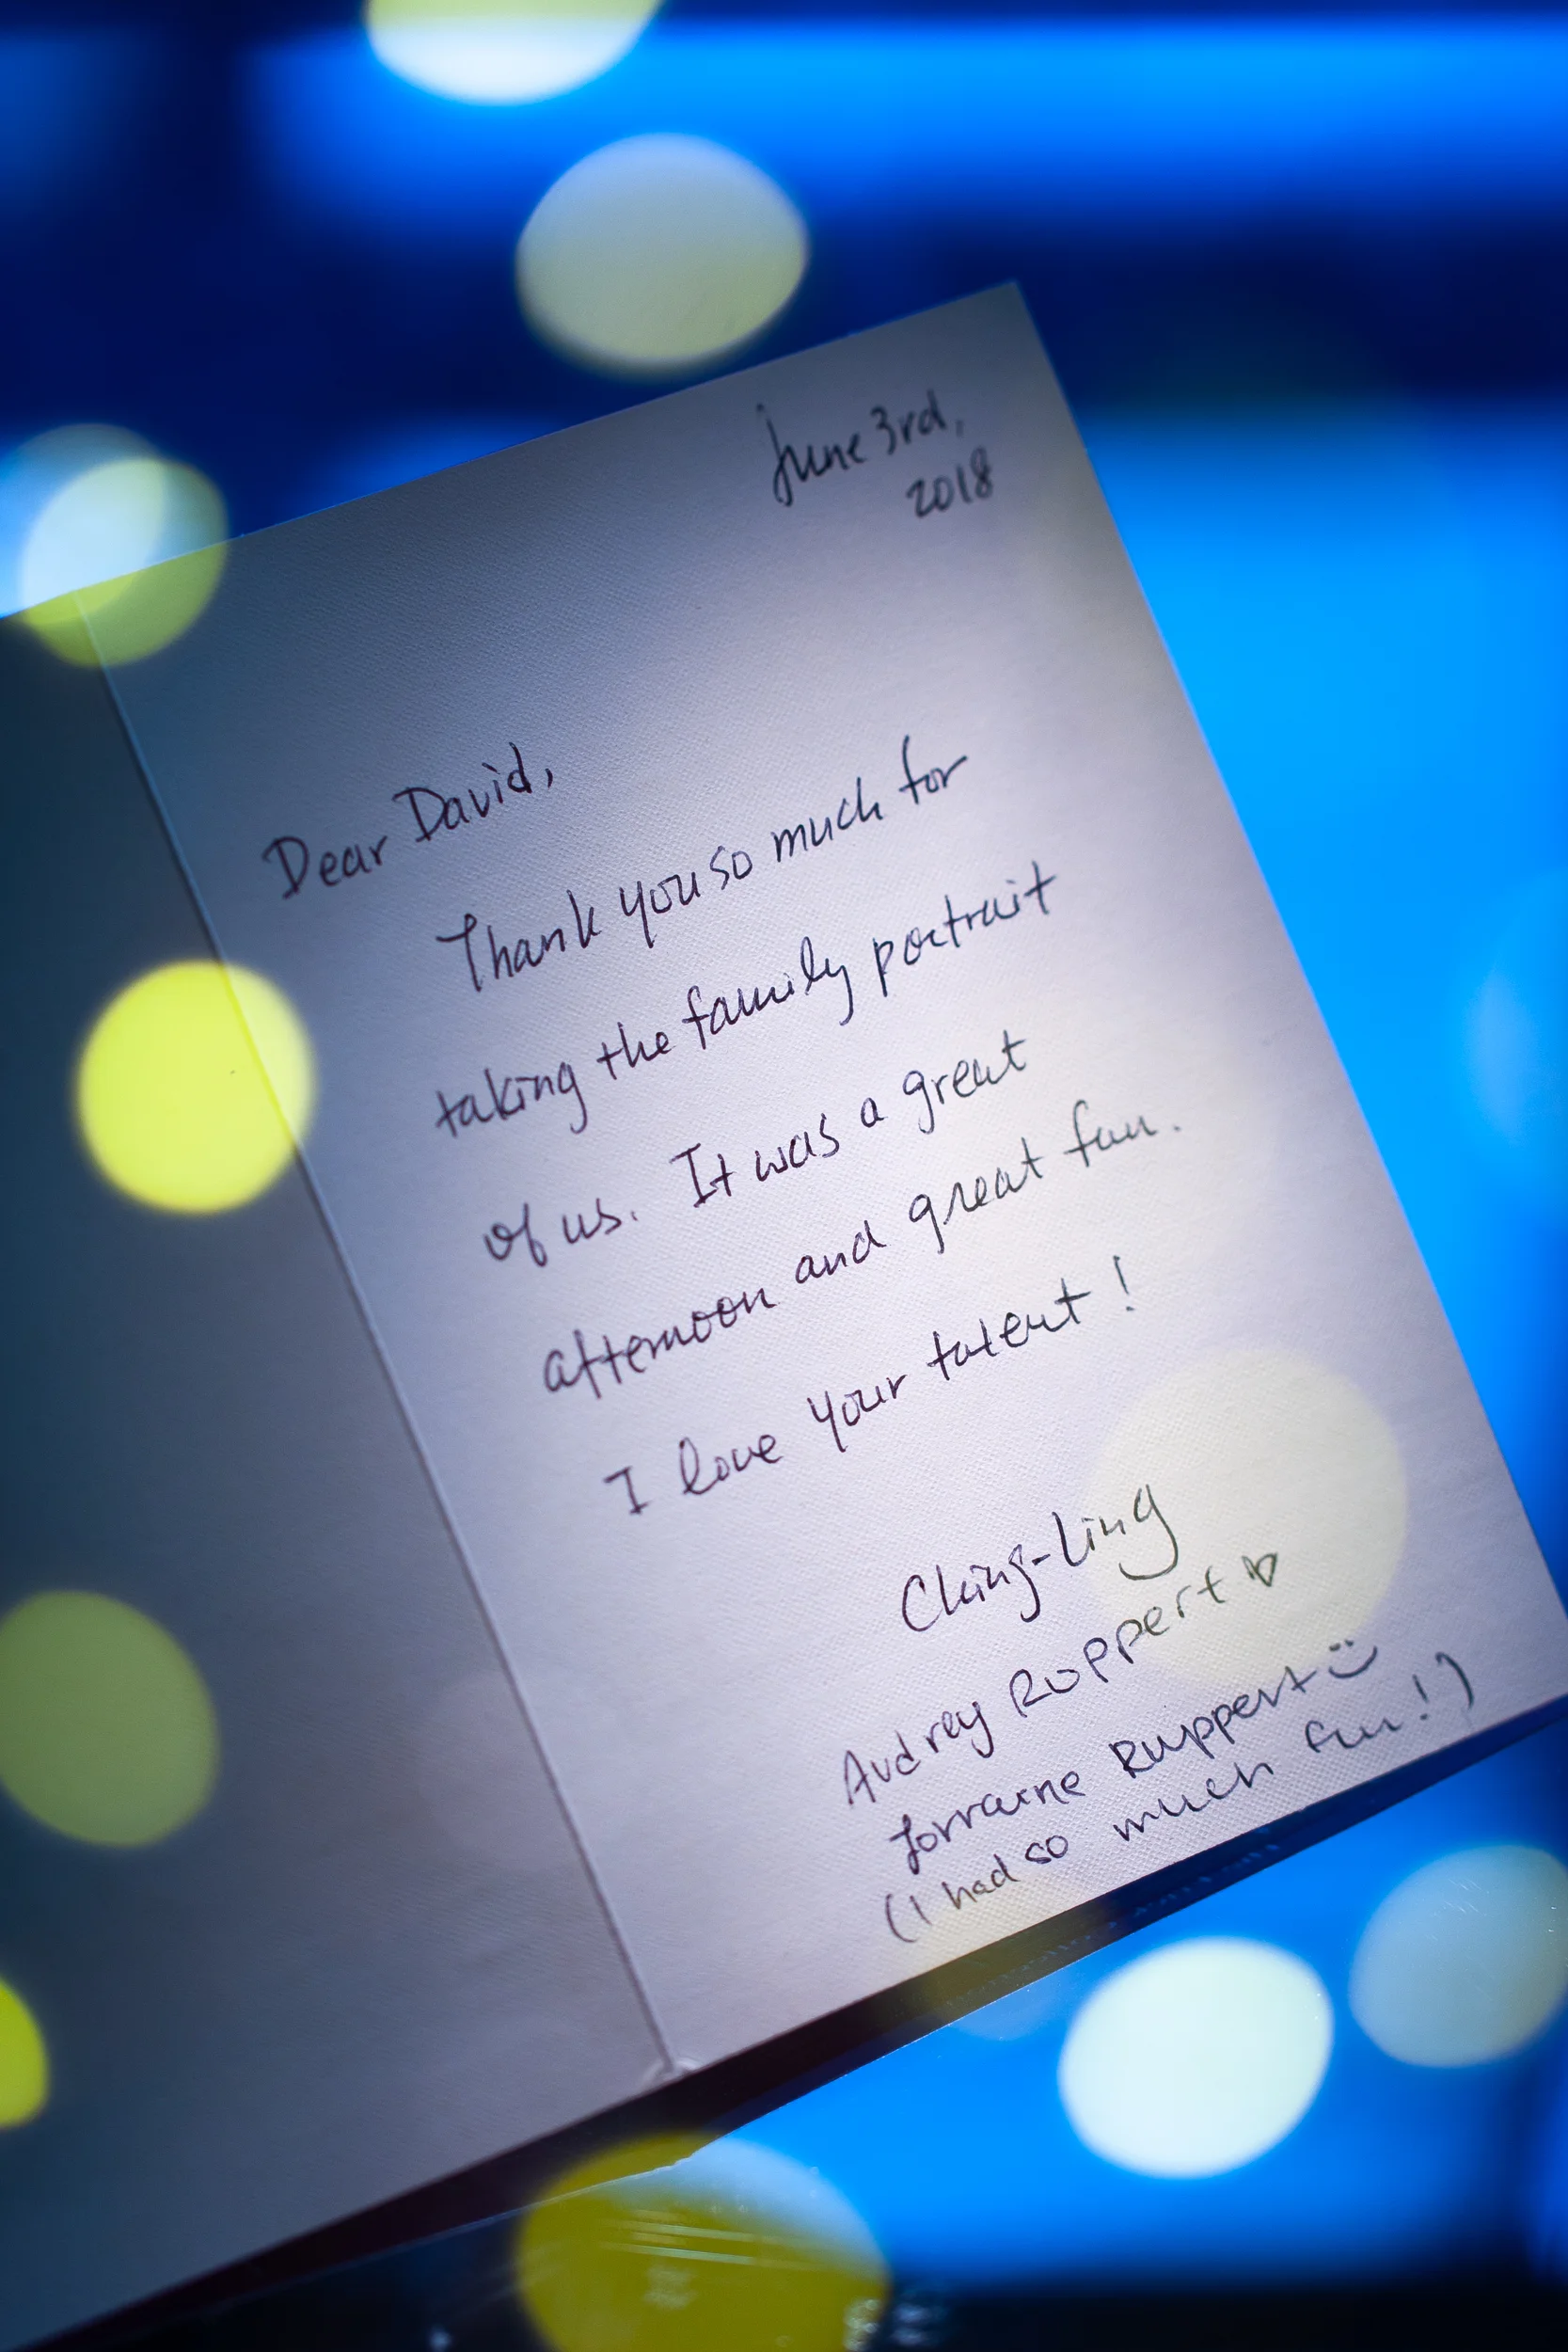 June 3rd,
2018
Dear David,
Thank you so much for
taking the family portrait
of us. It was a great
afternoon and great fun.
I love your talent!
Ching-Ling
Audrey Ruppert ♡
Lorraine Ruppert ☺
(I had so much fun!)